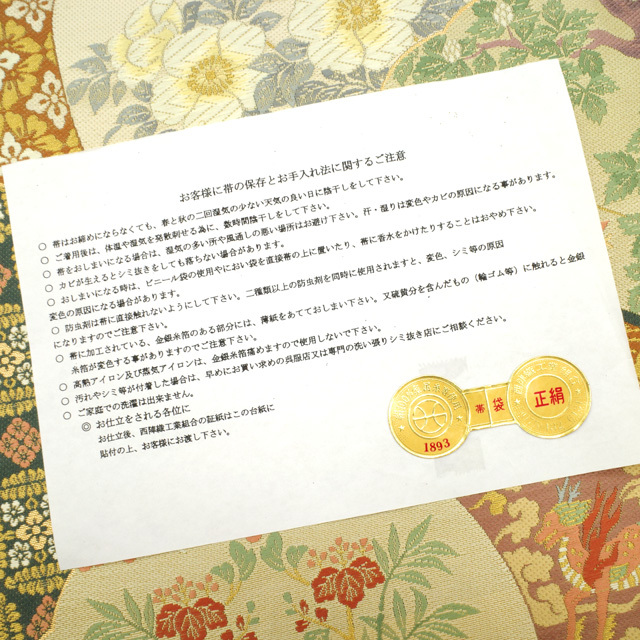 お客様に帯の保存とお手入れ法に関するご注意
○ 帯はお締めにならなくても、春と秋の二回湿気の少ない天気の良い日に陰干しをして下さい。
○ ご着用後は、体温や湿気を発散刺せる為に、数時間陰干しをして下さい。
○ 帯をおしまいになる場合は、湿気の多い所や風通しの悪い場所はお避け下さい。汗・湿りは変色やカビの原因になる事があります。
○ カビが生えるとシミ抜きをしても落ちない場合があります。
○ おしまいになる時は、ビニール袋の使用やにおい袋を直接帯の上に置いたり、帯に香水をかけたりすることはおやめ下さい。
変色の原因になる場合があります。
○ 防虫剤は帯に直接触れないようにして下さい。二種類以上の防虫剤を同時に使用されますと、変色、シミ等の原因
になりますのでご注意下さい。
○ 帯に加工されている、金銀糸箔のある部分には、薄紙をあてておしまい下さい。又硫黄分を含んだもの（輪ゴム等）に触れると金銀
糸箔が変色する事がありますのでご注意下さい。
○ 高熱アイロン及び蒸気アイロンは、金銀糸箔痛めますので使用しないで下さい。
○ 汚れやシミ等が付着した場合は、早めにお買い求めの呉服店又は専門の洗い張りシミ抜き店にご相談ください。
○ ご家庭での洗濯は出来ません。
◎ お仕立をされる各位に
お仕立後、西陣織工業組合の証紙はこの台紙に
貼付の上、お客様にお渡し下さい。
1893
帯 袋
正絹